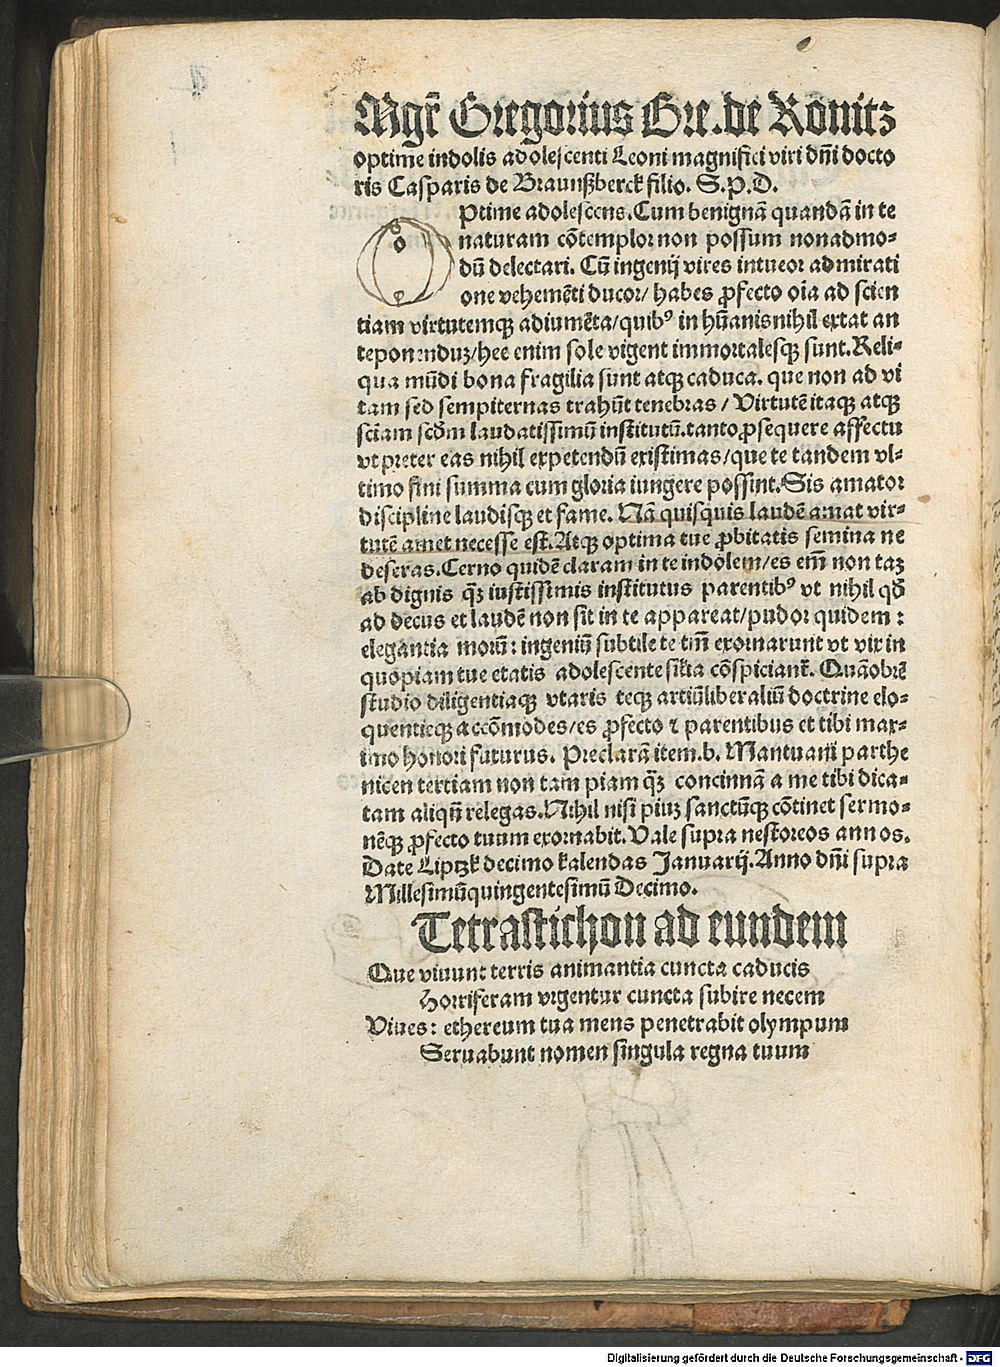 Mgr̄ Gregorius Bre. de Kōnitz
optime indolis adolescenti Leoni magnifici viri dn̄i docto
ris Casparis de Braunßberck filio. S.P.D.
O Ptime adolescens. Cum benignā quandā in te
naturam cōtemplor non possum nonadmo-
dū delectari. Cū ingenij vires intueor admirati
one vehemēti ducor/ habes ꝓfecto oīa ad scien
tiam virtutemqꝫ adiumēta/quibꝰ in hūanisnihil extat an
teponenduz/hec enim sole vigent immortalesqꝫ sunt. Reli-
qua mūdi bona fragilia sunt atqꝫ caduca. que non ad vi
tam sed sempiternas trahūt tenebras / Virtutē itaqꝫ atqꝫ
sciam scdm̄ laudatissimū institutū. tanto ꝓsequere affectu
vt preter eas nihil expetendū existimas/que te tandem vl-
timo fini summa cum gloria iungere possint. Sis amator
discipline laudisqꝫ et fame. Nā quisquis laudē amat vir-
tutē amet necesse est. Atqꝫ optima tue ꝓbitatis semina ne
deseras. Cerno quidē claram in te indolem/es em̄ non taꝫ
ab dignis qꝫ̄ iustissimis institutus parentibꝰ vt nihil qd̄
ad decus et laudē non sit in te appareat/pudor quidem :
elegantia morū: ingeniū subtile te tm̄ exornarunt vt vix in
quopiam tue etatis adolescente sil̄ia cōspiciant̄. Quāobrē
studio diligentiaqꝫ vtaris teqꝫ artiūliberaliū doctrine elo-
quentieqꝫ accōmodes/es ꝓfecto ⁊ parentibus et tibi max-
imo honori futurus. Preclarā item. b. Mantuani parthe
nicen tertiam non tam piam qꝫ̄ concinnā a me tibi dica-
tam aliqn̄ relegas. Nihil nisi piuꝫ sanctūqꝫ cōtinet sermo-
nēqꝫ ꝓfecto tuum exornabit. Vale supra nestoreos annos.
Date Liptzk decimo kalendas Januarij. Anno dn̄i supra
Millesimūquingentesimū Decimo.
Tetrastichon ad eundem
Que viuunt terris animantia cuncta caducis
Horriferam vrgentur cuncta subire necem
Viues: ethereum tua mens penetrabit olympum
Seruabunt nomen singula regna tuum
Digitalisierung gefördert durch die Deutsche Forschungsgemeinschaft - DFG